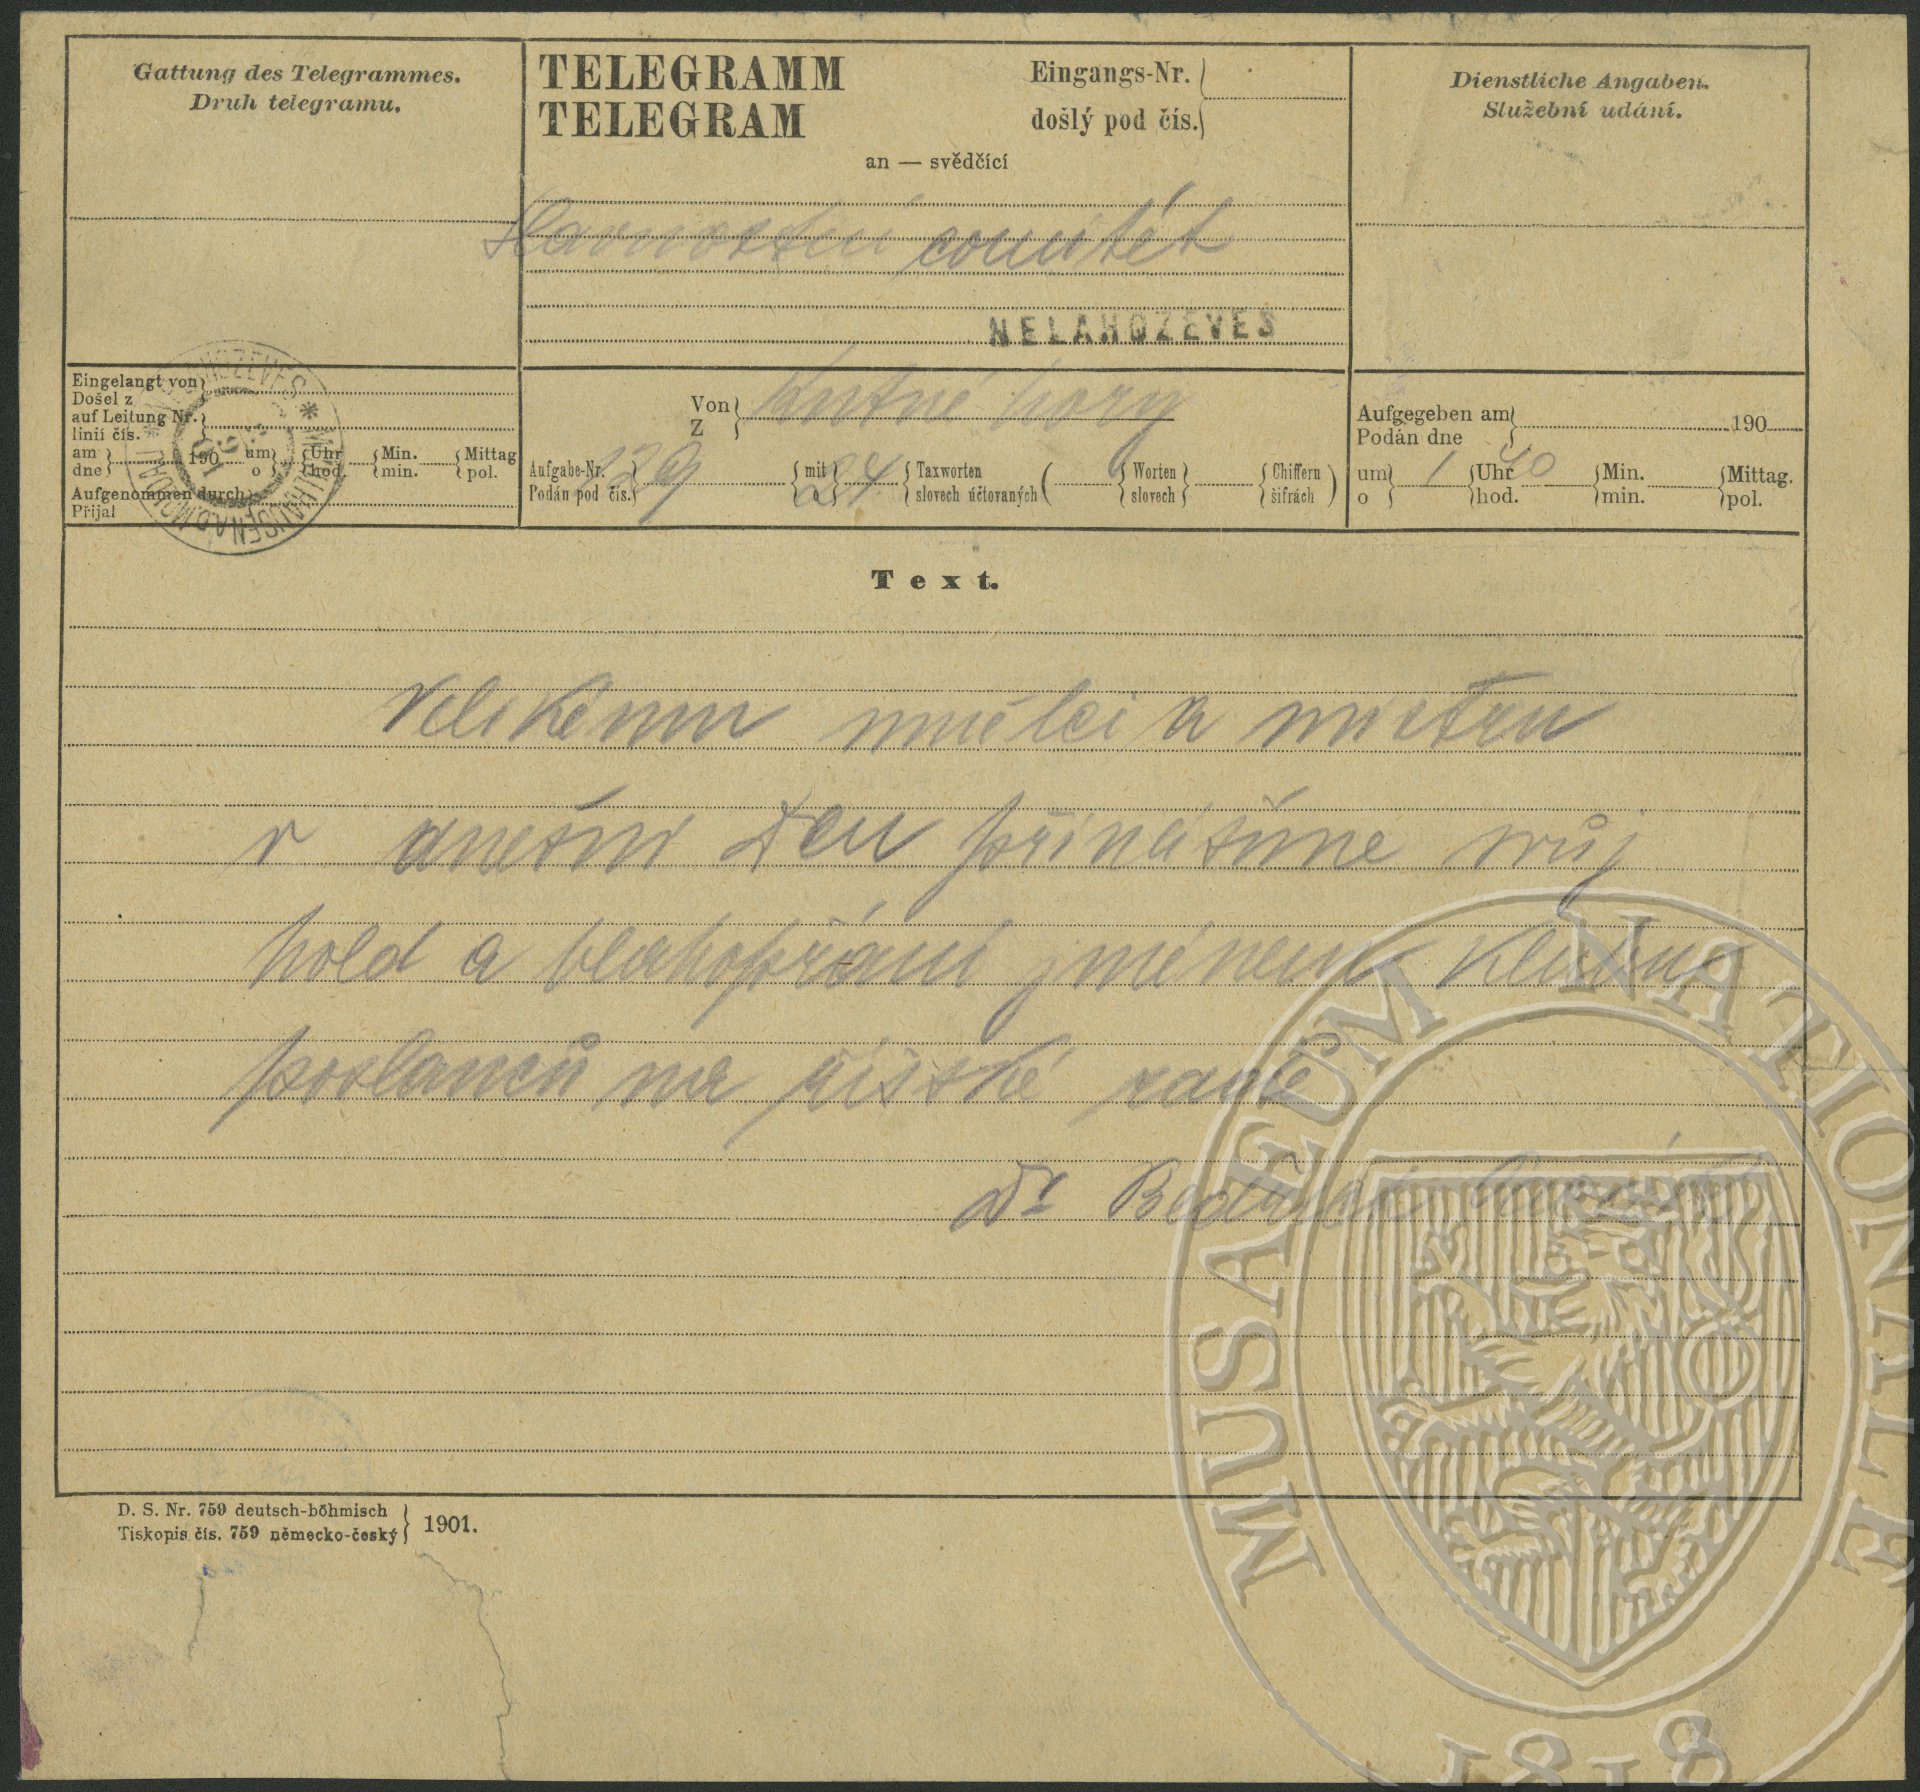 Gattung des Telegrammes.
Druh telegramu.
TELEGRAMM
TELEGRAM
Eingangs-Nr.
došlý pod čís.
an — svědčící
Dienstliche Angaben.
Služební udání.
Slavnostní comitét
NELAHOZEVES
Eingelangt von
Došel z
auf Leitung Nr.
linií čís.
am 190 um Uhr Min. Mittag
dne o hod. min. pol.
Aufgenommen durch
Přijal
Von
Z
Kutné hory
Aufgabe-Nr.
Podán pod čís.
129
mit
o
24
Taxworten
slovech účtovaných
( Worten
slovech
Chiffern
šifrách )
Aufgegeben am 190
Podán dne
um 1 Uhr 40 Min. Mittag.
o hod. min. pol.
Text.
Velikému umělci a mistru
v dnešní den přinášíme svůj
hold a blahopřání jménem klubu
poslanců na říšské radě
Dr Bedřich
D. S. Nr. 759 deutsch-böhmisch
Tiskopis čís. 759 německo-český
1901.
MUSAEUM NATIONALE
1818